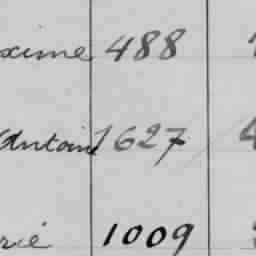 xime 488
(Antoin) 627
rié 1009